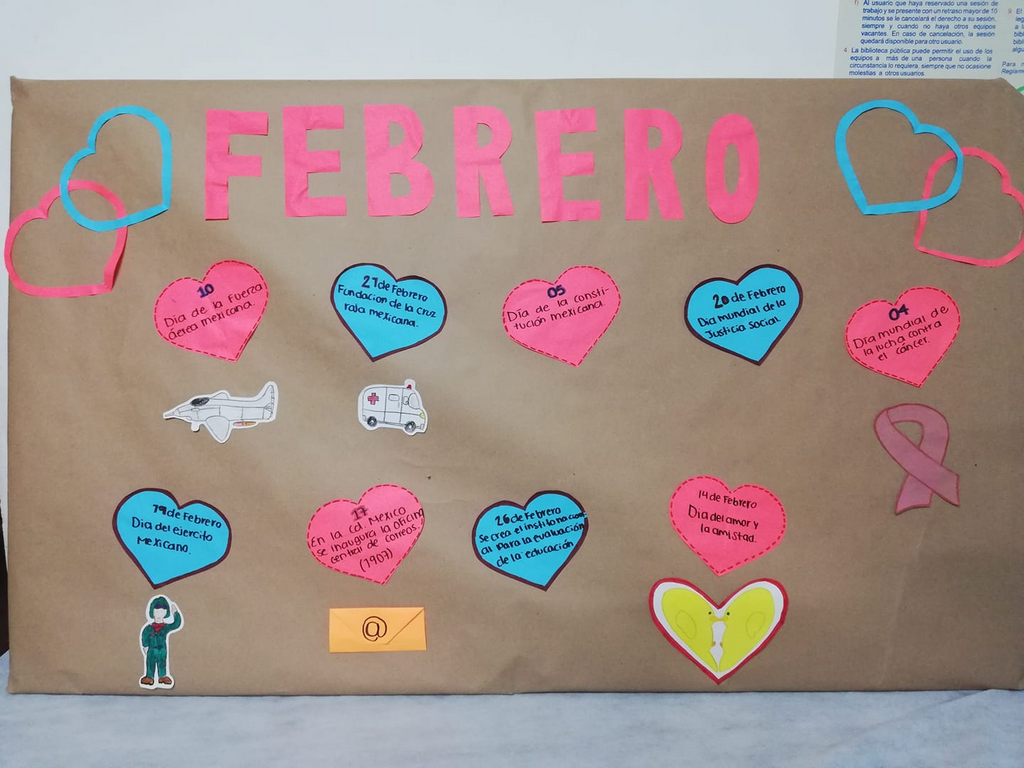 f) Al usuario que haya reservado una sesión de
trabajo y se presente con un retraso mayor de 10
minutos se le cancelará el derecho a su sesión,
siempre y cuando no haya otros equipos
vacantes. En caso de cancelación, la sesión
quedará disponible para otro usuario.
4. La biblioteca pública puede permitir el uso de los
equipos a más de una persona cuando la
circunstancia lo requiera, siempre que no ocasione
molestias a otros usuarios.
FEBRERO
10
Día de la Fuerza
Aérea mexicana.
21 de Febrero
Fundacion de la Cruz
roja mexicana.
05
Día de la consti-
tución mexicana.
20 de Febrero
Dia mundial de la
Justicia social.
04
Día mundial de
la lucha contra
el cáncer.
19 de Febrero
Dia del ejercito
Mexicano.
17
En la cd. México
se inaugura la oficina
central de correos.
(1907)
@
26 de Febrero
Se crea el instituto nacion-
al para la evaluación
de la educación
14 de Febrero
Dia del amor y
la amistad.